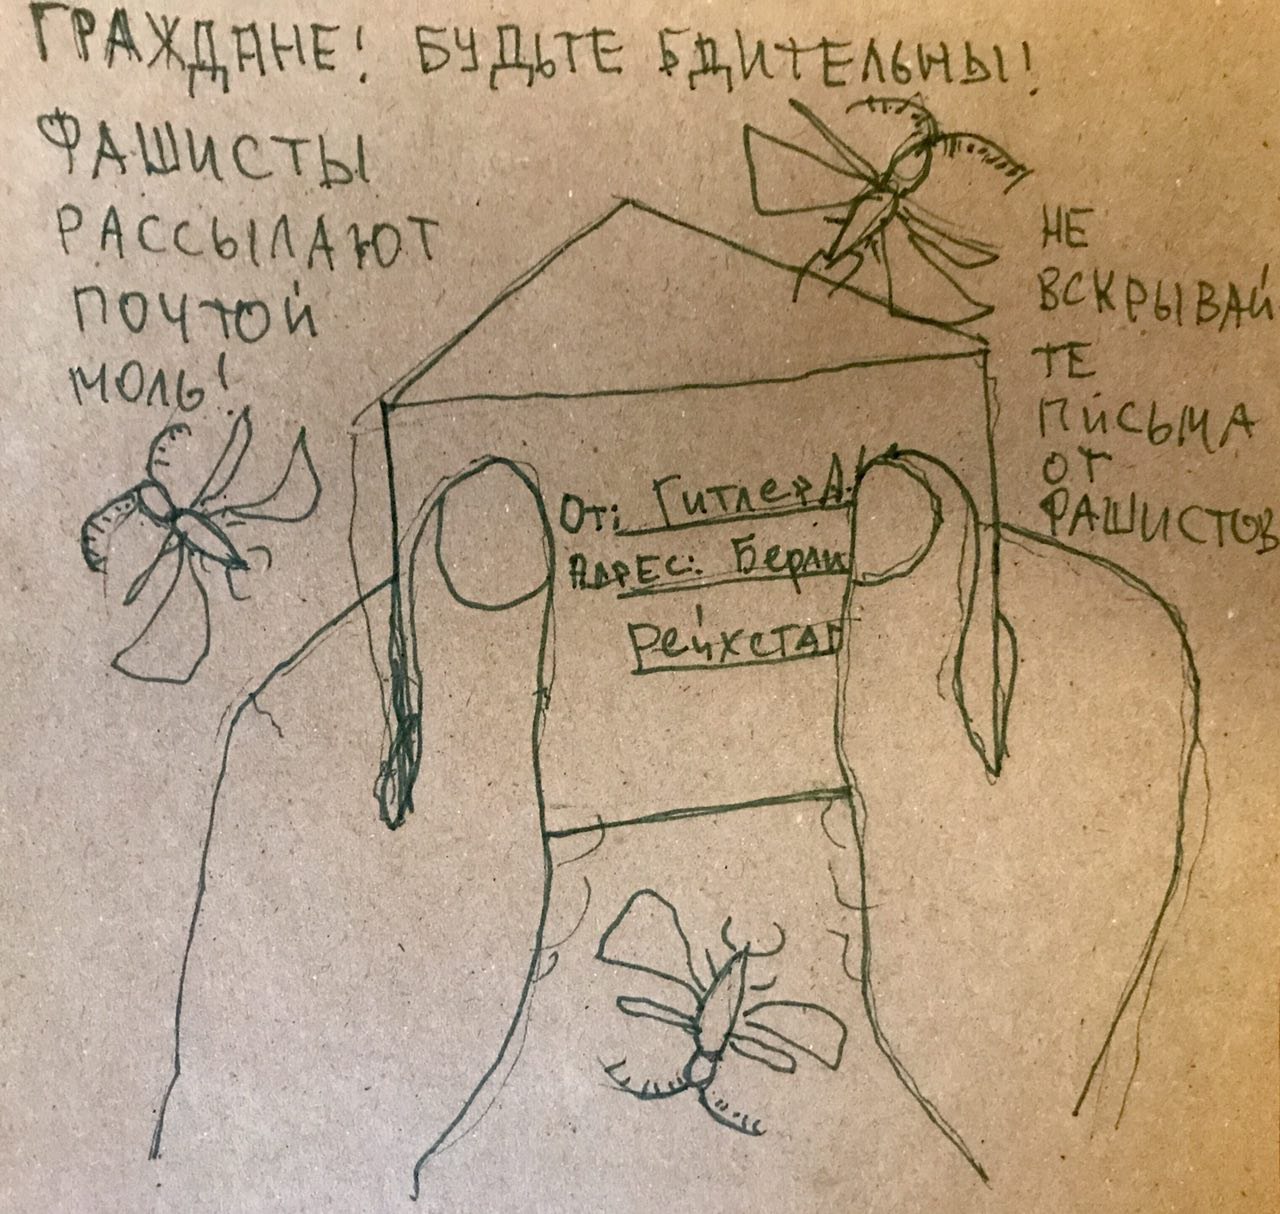 ГРАЖДАНЕ! БУДЬТЕ БДИТЕЛЬНЫ!
ФАШИСТЫ
РАССЫЛАЮТ
ПОЧТОЙ
МОЛЬ!
НЕ
ВСКРЫВАЙ
ТЕ
ПИСЬМА
ОТ
ФАШИСТОВ
ОТ: ГИТЛЕР А.
АДРЕС: БЕРЛИ
РЕЙХСТАГ